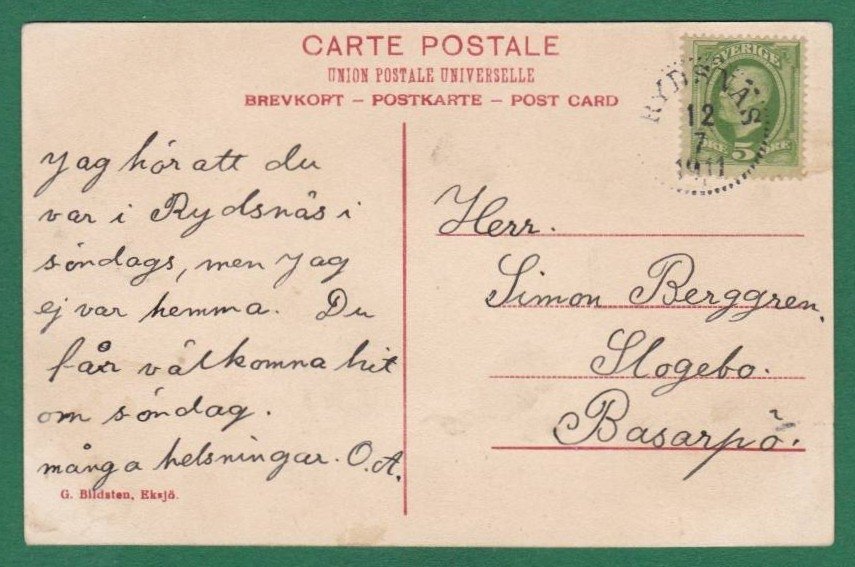 CARTE POSTALE
UNION POSTALE UNIVERSELLE
BREVKORT – POSTKARTE – POST CARD
SVERIGE
ÖRE 5 ÖRE
RYDSNÄS
12
7
1911
Jag hör att du
var i Rydsnäs i
söndags, men Jag
ej var hemma. Du
får välkomna hit
om söndag.
många helsningar. O.A.
G. Bildsten, Eksjö.
Herr.
Simon Berggren.
Slogebo.
Basarpö.